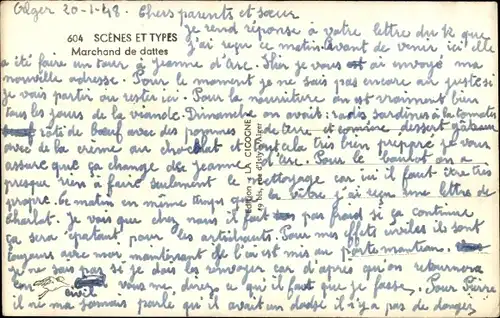 Alger 20-1-48. Chers parents et sœur
Je rend réponse à votre lettre du 12 que
604 SCÈNES ET TYPES
Marchand de dattes
j'ai reçu ce matin. Avant de venir ici elle
a été faire un tour à Jeanne d'Arc. Hier je vous ai envoyé ma
nouvelle adresse. Pour le moment je ne sais pas encore au juste si
je vais partir ou rester ici. Pour la nourriture on est vraiment bien
tous les jours de la viande. Dimanche on avait: rades sardines à la tomates
roti de bœuf avec des pommes de terre et comme dessert gâteau
avec de la crème au chocolat et tout cela très bien préparé je vous
assure que ça change de Jeanne d'Arc. Pour le boulot on a
presque rien à faire seulement le nettoyage car ici il faut être très
propre. Ce matin en même temps que la vôtre j'ai reçu une lettre de
Charlot. Je vois que chez nous il fait pas froid si ça continue
ça sera épatant pour les artichauts. Pour mes effets civiles ils sont
toujours avec moi, maintenant de l'ai est mis au portemanteau.
je ne sais pas si je dois les renvoyer car d'après qu'on retournera
en civil vous me direz ce qu'il faut que je fasse. Pour Pierre
il ne m'a jamais parlé qu'il avait un il n'y a pas de danger
Edition "LA CIGOGNE"
bis, rue d'Isly - Alger